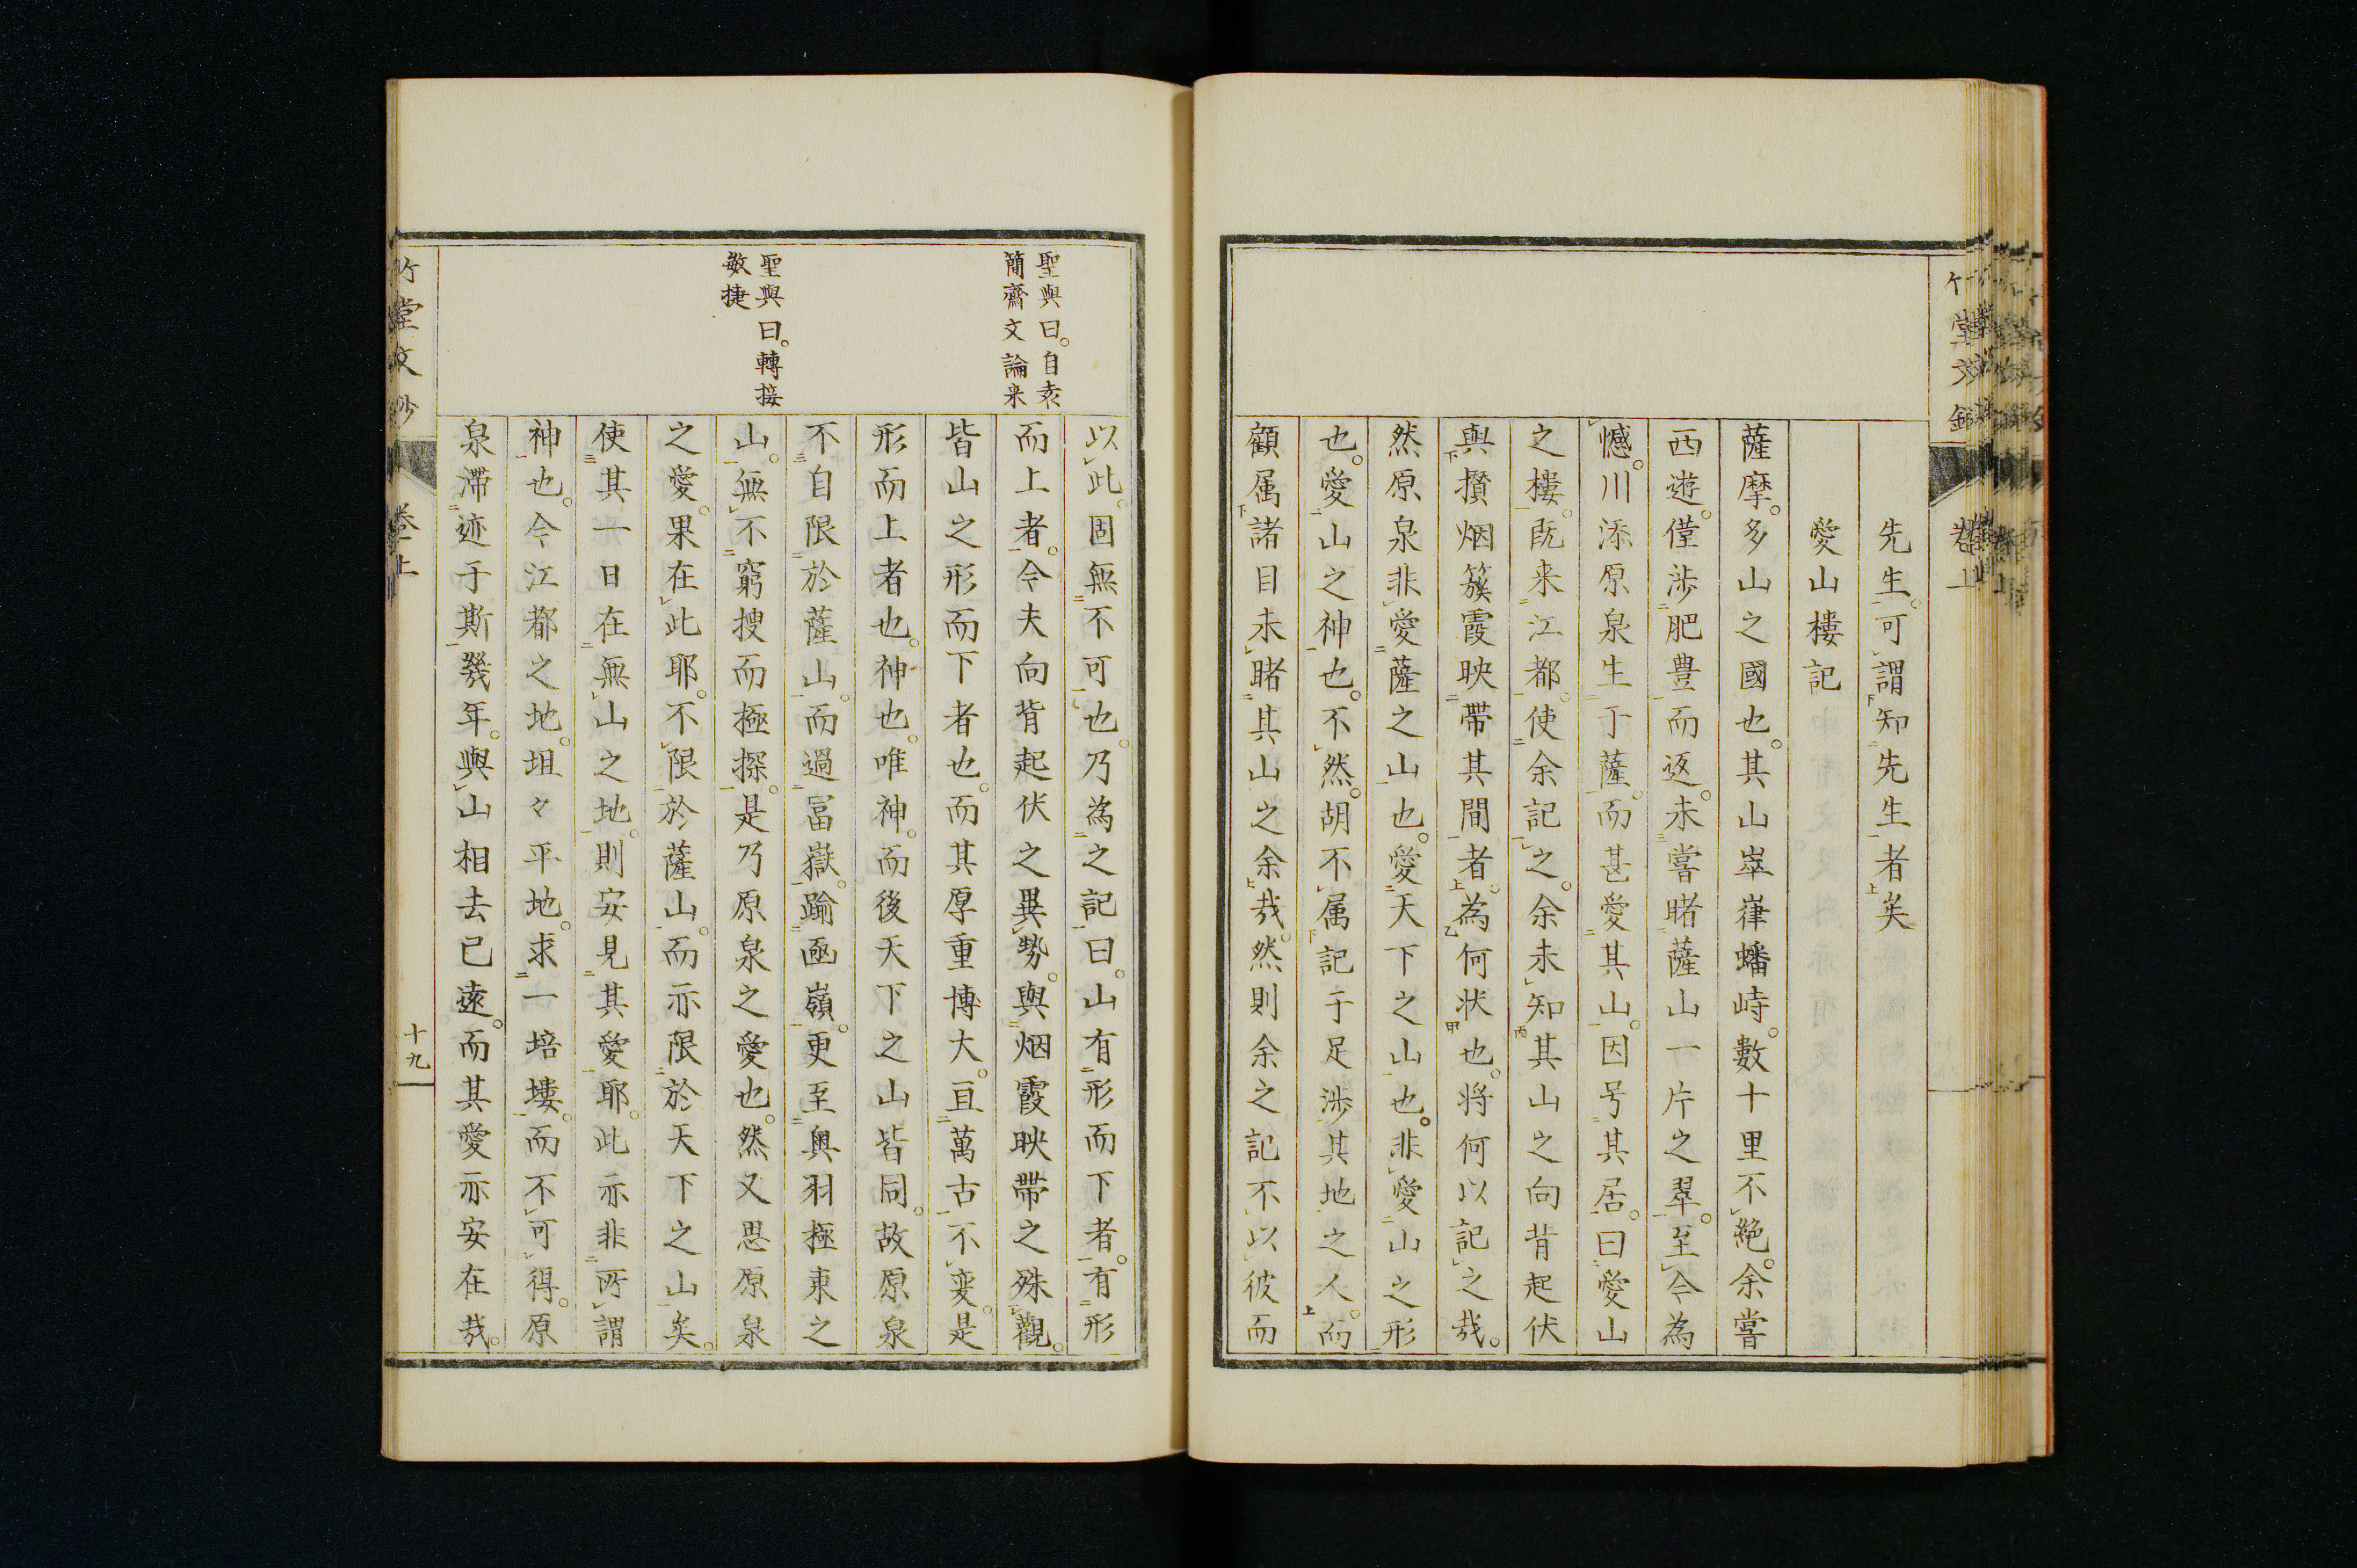 先生。可謂知先生者矣
愛山樓記
薩摩。多山之國也。其山崒嵂蟠峙。數十里不絶。余嘗
西遊。僅渉肥豊而返。未嘗睹薩山一片之翠。至今為
憾。川添原泉生于薩。而甚愛其山。因号其居。曰愛山
之樓。既来江都。使余記之。余未知其山之向背起伏
與攅烟簇霞映帶其間者。為何状也。将何以記之哉。
然原泉非愛薩之山也。愛天下之山也。非愛山之形
也。愛山之神也。不然。胡不属記于足渉其地之人。而
顧属諸目未睹其山之余哉。然則余之記不以彼而
以此。固無不可也。乃為之記曰。山有形而下者。有形
而上者。今夫向背起伏之異勢。與烟霞映帶之殊觀。
皆山之形而下者也。而其厚重博大。亘萬古不変。是
形而上者也。神也。唯神。而後天下之山皆同。故原泉
不自限於薩山。而過冨嶽。踰凾嶺。更至奥羽極東之
山。無不窮捜而極探。是乃原泉之愛也。然又思原泉
之愛。果在此耶。不限於薩山。而亦限於天下之山矣。
使其一日在無山之地。則安見其愛耶。此亦非所謂
神也。今江都之地。坦々平地。求一培塿。而不可得。原
泉滯迹于斯幾年。與山相去已遠。而其愛亦安在哉。
聖與曰。自袁
簡齋文論来
聖與曰。轉接
敏捷
竹堂文鈔
卷上
十九